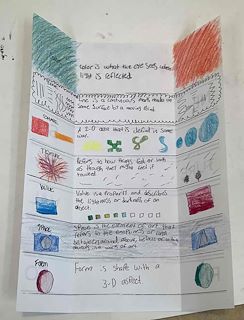 Color is what the eye sees when
light is reflected
Line is a continuous mark made on
some surface by a moving point
Shape
A 2-D area that is defined in some
way.
Texture
Refers to how things feel or look
as though they might feel if
touched
Value
Value is and describes
the lightness or darkness of an
object.
Space
Space is the element of art that
refers to the emptiness or area
between, around, above, below or within
objects in a work of art
Form
Form is shape with a
3-D aspect